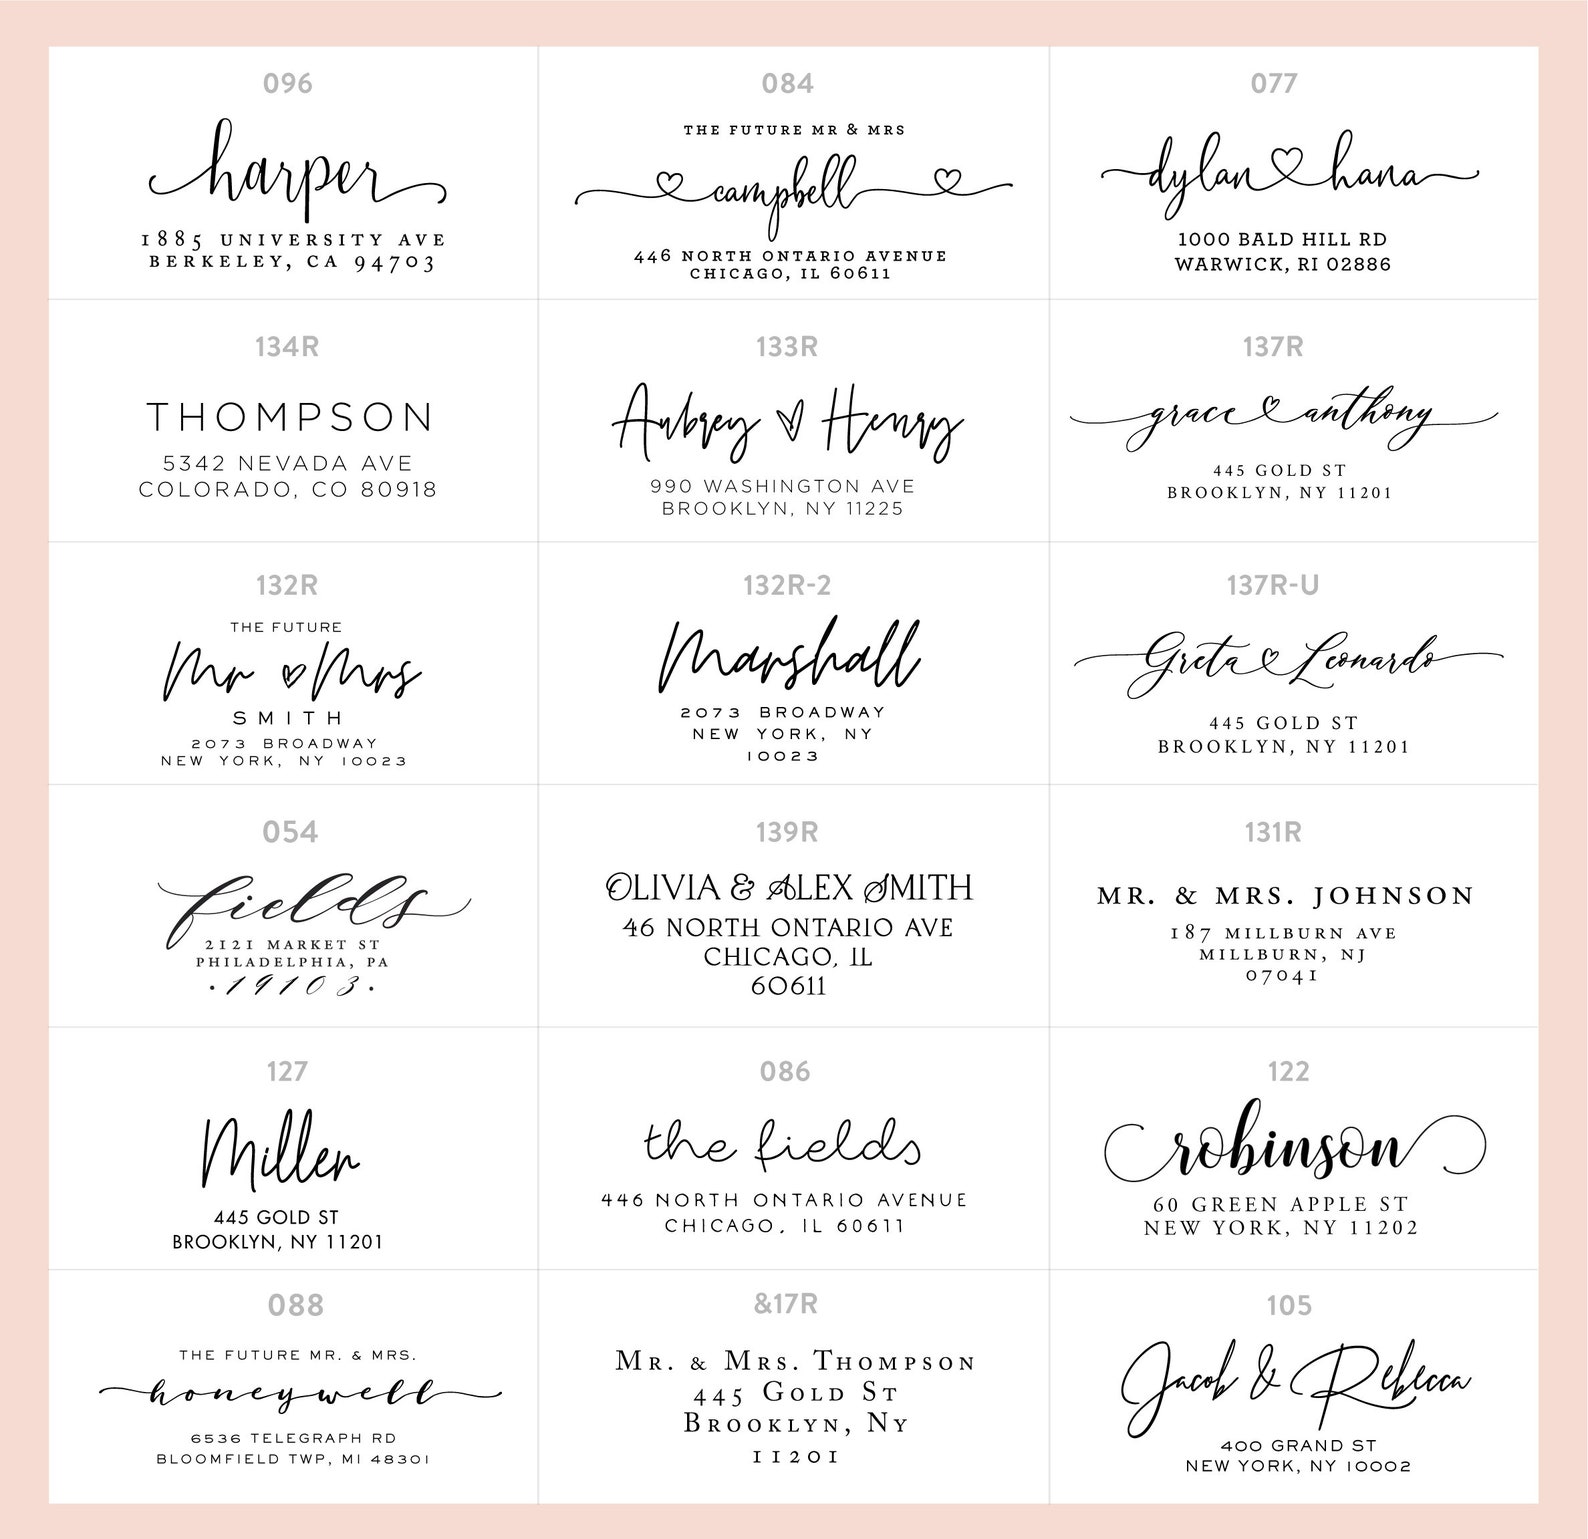 096
harper
1885 UNIVERSITY AVE
BERKELEY, CA 94703
084
THE FUTURE MR & MRS
campbell
446 NORTH ONTARIO AVENUE
CHICAGO, IL 60611
077
dylan hana
1000 BALD HILL RD
WARWICK, RI 02886
134R
THOMPSON
5342 NEVADA AVE
COLORADO, CO 80918
133R
Aubrey Henry
990 WASHINGTON AVE
BROOKLYN, NY 11225
137R
grace anthony
445 GOLD ST
BROOKLYN, NY 11201
132R
THE FUTURE
Mr Mrs
SMITH
2073 BROADWAY
NEW YORK, NY 10023
132R-2
Marshall
2073 BROADWAY
NEW YORK, NY
10023
137R-U
Greta Leonardo
445 GOLD ST
BROOKLYN, NY 11201
054
fields
2121 MARKET ST
PHILADELPHIA, PA
·19103·
139R
OLIVIA & ALEX SMITH
46 NORTH ONTARIO AVE
CHICAGO, IL
60611
131R
MR. & MRS. JOHNSON
187 MILLBURN AVE
MILLBURN, NJ
07041
127
Miller
445 GOLD ST
BROOKLYN, NY 11201
086
the fields
446 NORTH ONTARIO AVENUE
CHICAGO, IL 60611
122
robinson
60 GREEN APPLE ST
NEW YORK, NY 11202
088
THE FUTURE MR. & MRS.
honeywell
6536 TELEGRAPH RD
BLOOMFIELD TWP, MI 48301
&17R
Mr. & Mrs. Thompson
445 Gold St
Brooklyn, Ny
11201
105
Jacob & Rebecca
400 GRAND ST
NEW YORK, NY 10002